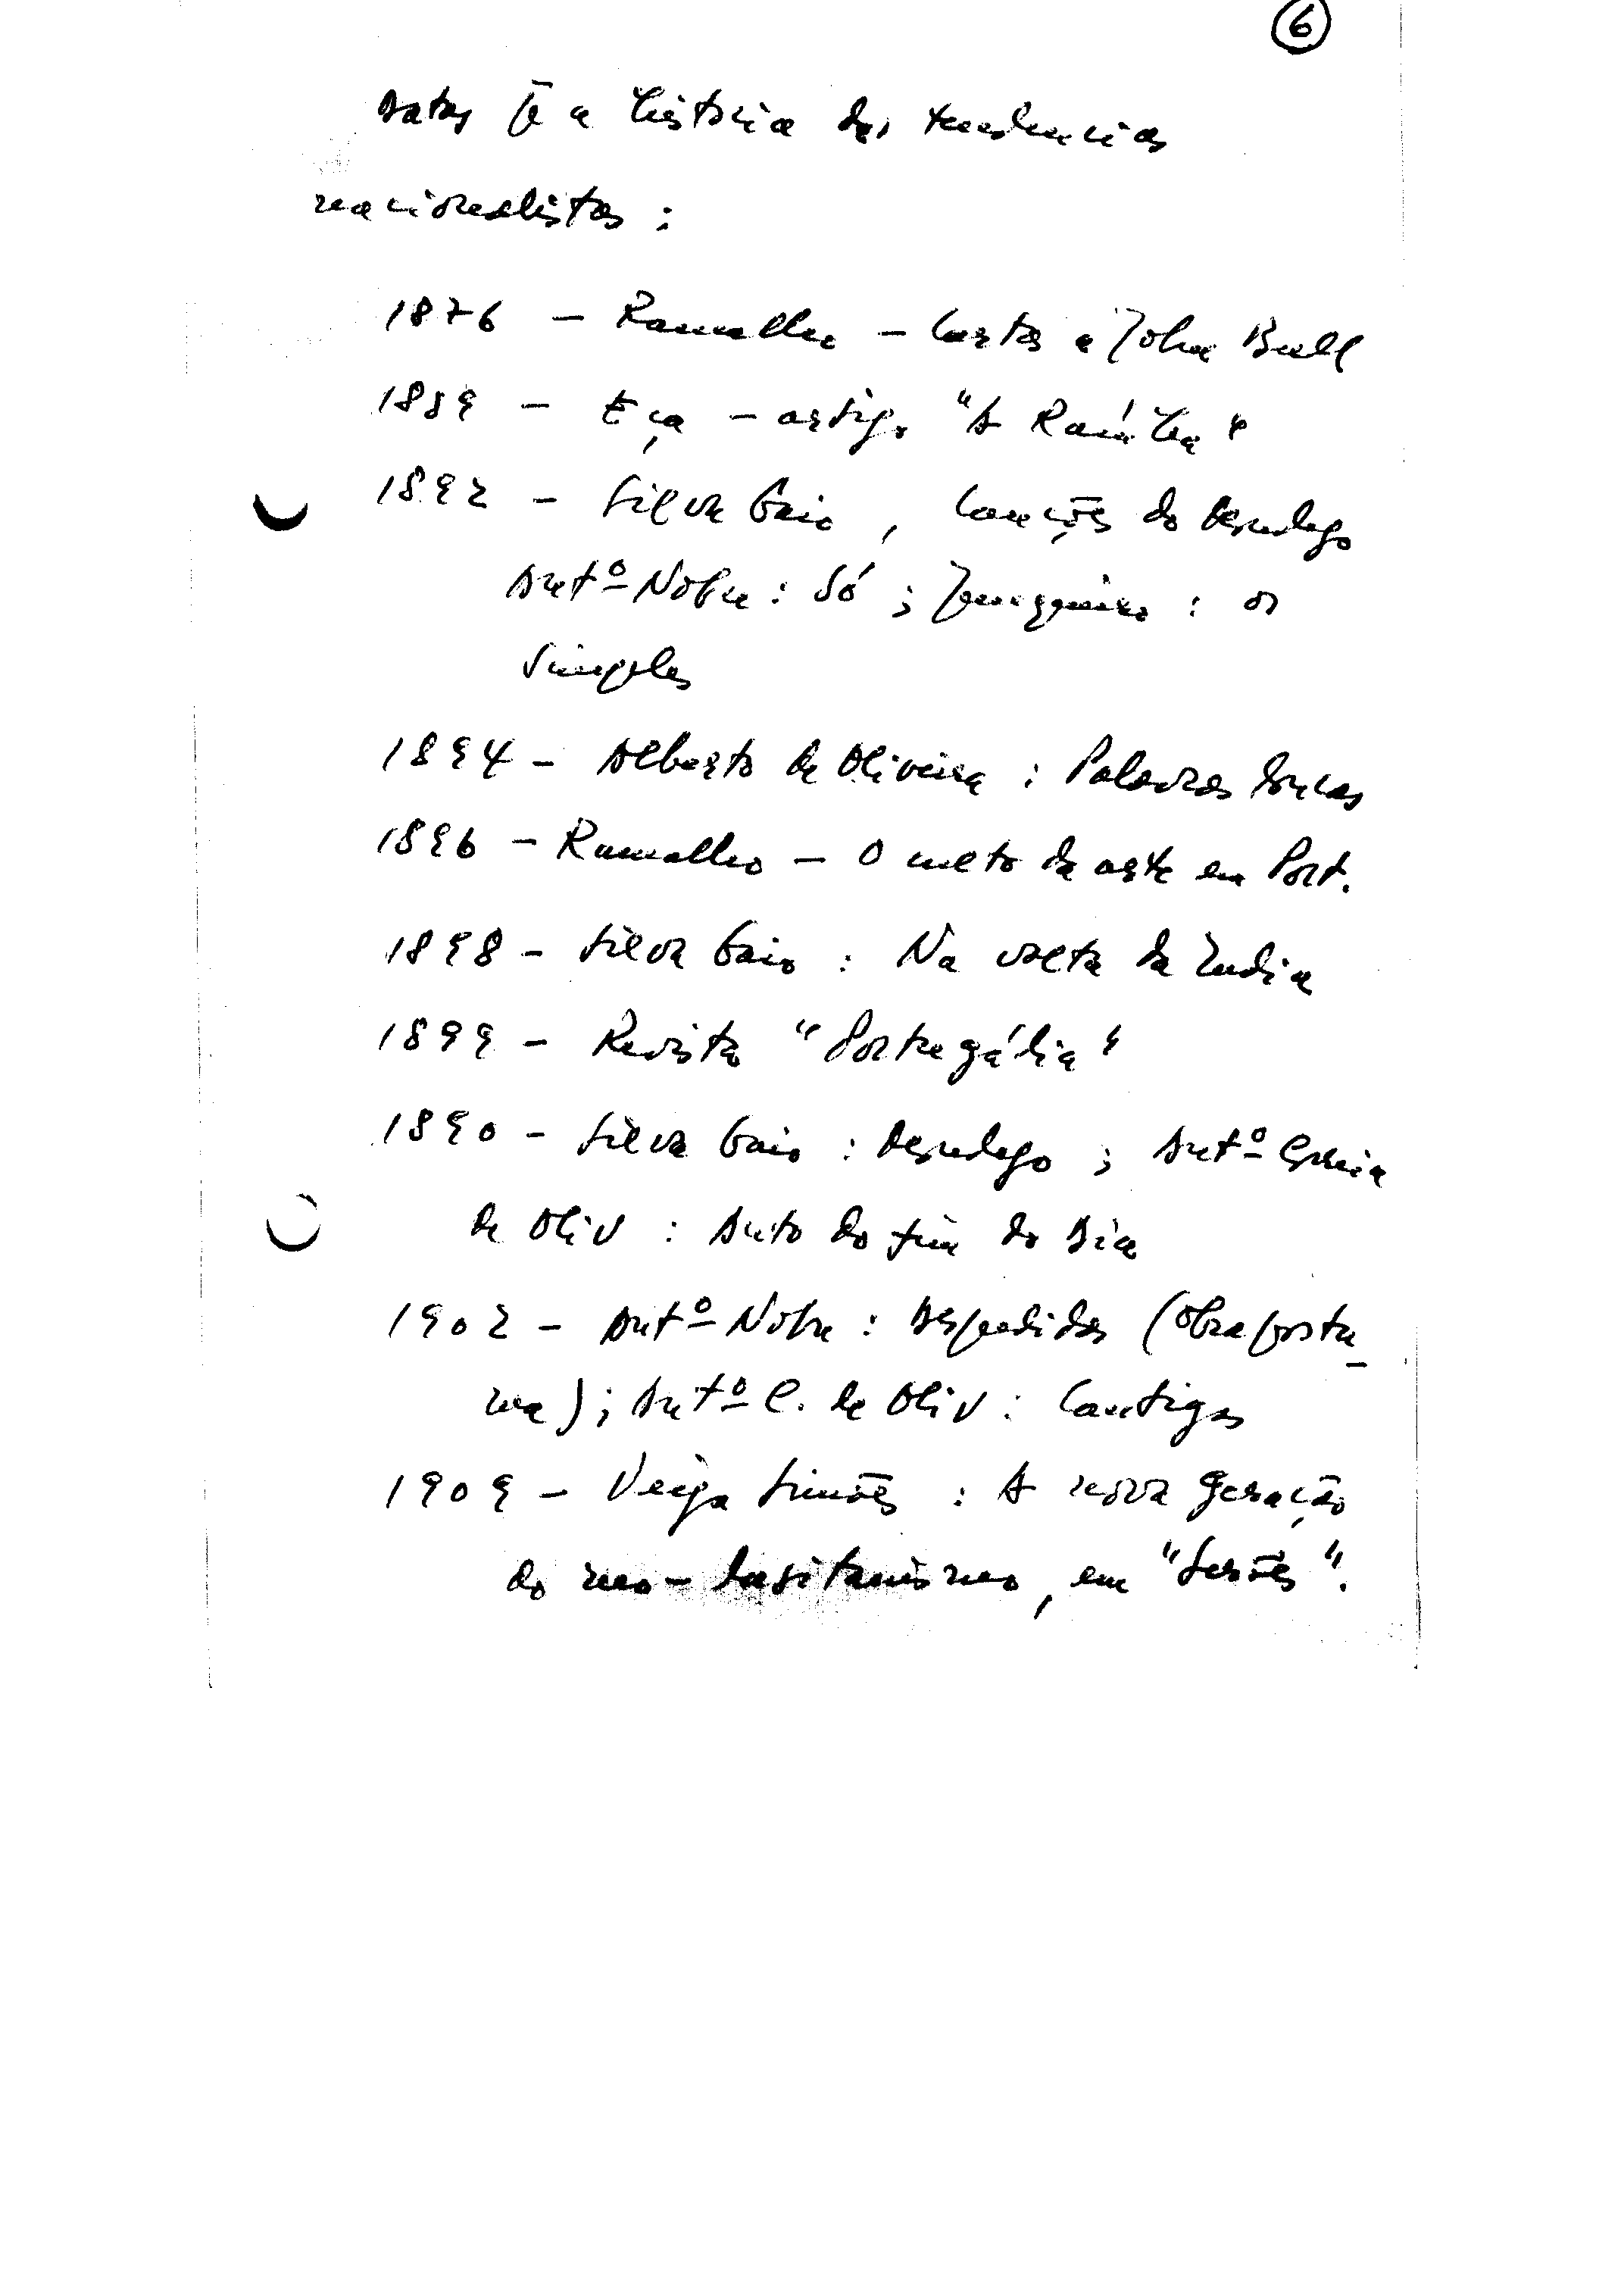 6
Datas p̄ a história das tendencias
nacionalistas :
1876 – Ramalho – Cartas a John Bull
1889 – Eça – artigo "A Raínha"
1892 – Silva Gaio, Canções do Mondego
Antº Nobre : Só ; Junqueiro : os
Simples
1894 – Alberto de Oliveira : Palavras loucas
1896 – Ramalho – O culto da arte em Port.
1898 – Silva Gaio : Na volta da India
1899 – Revista "Portugália"
1890 – Silva Gaio : Mondego ; Antº Correia
de Oliv : Auto do fim do dia
1902 – Antº Nobre : Despedidas (obra póstu-
ma) ; Antº C. de Oliv : Cantigas
1909 – Veiga Simões : A nova geração
do neo-lusitanismo, em "Serões".